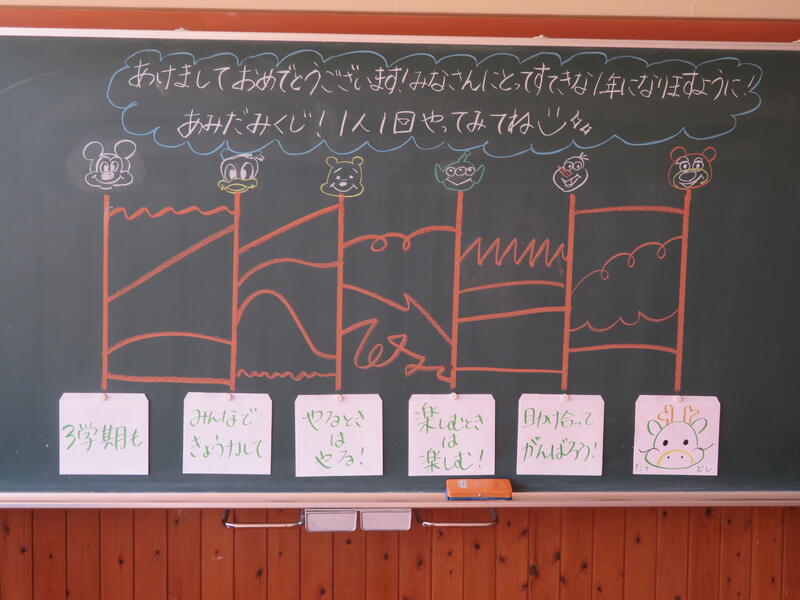 あけましておめでとうございます!みなさんにとってすてきな1年になりますように!
あみだみくじ!1人1回やってみてね
3学期も
みんなで
きょう力して
やるとき
は
やる!
楽しむとき
は
楽しむ!
助け合って
がんばろう!
たつ どし